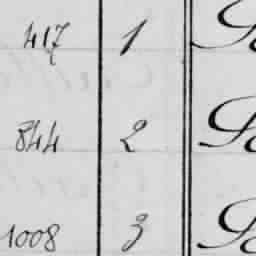 417 1
844 2
1008 3